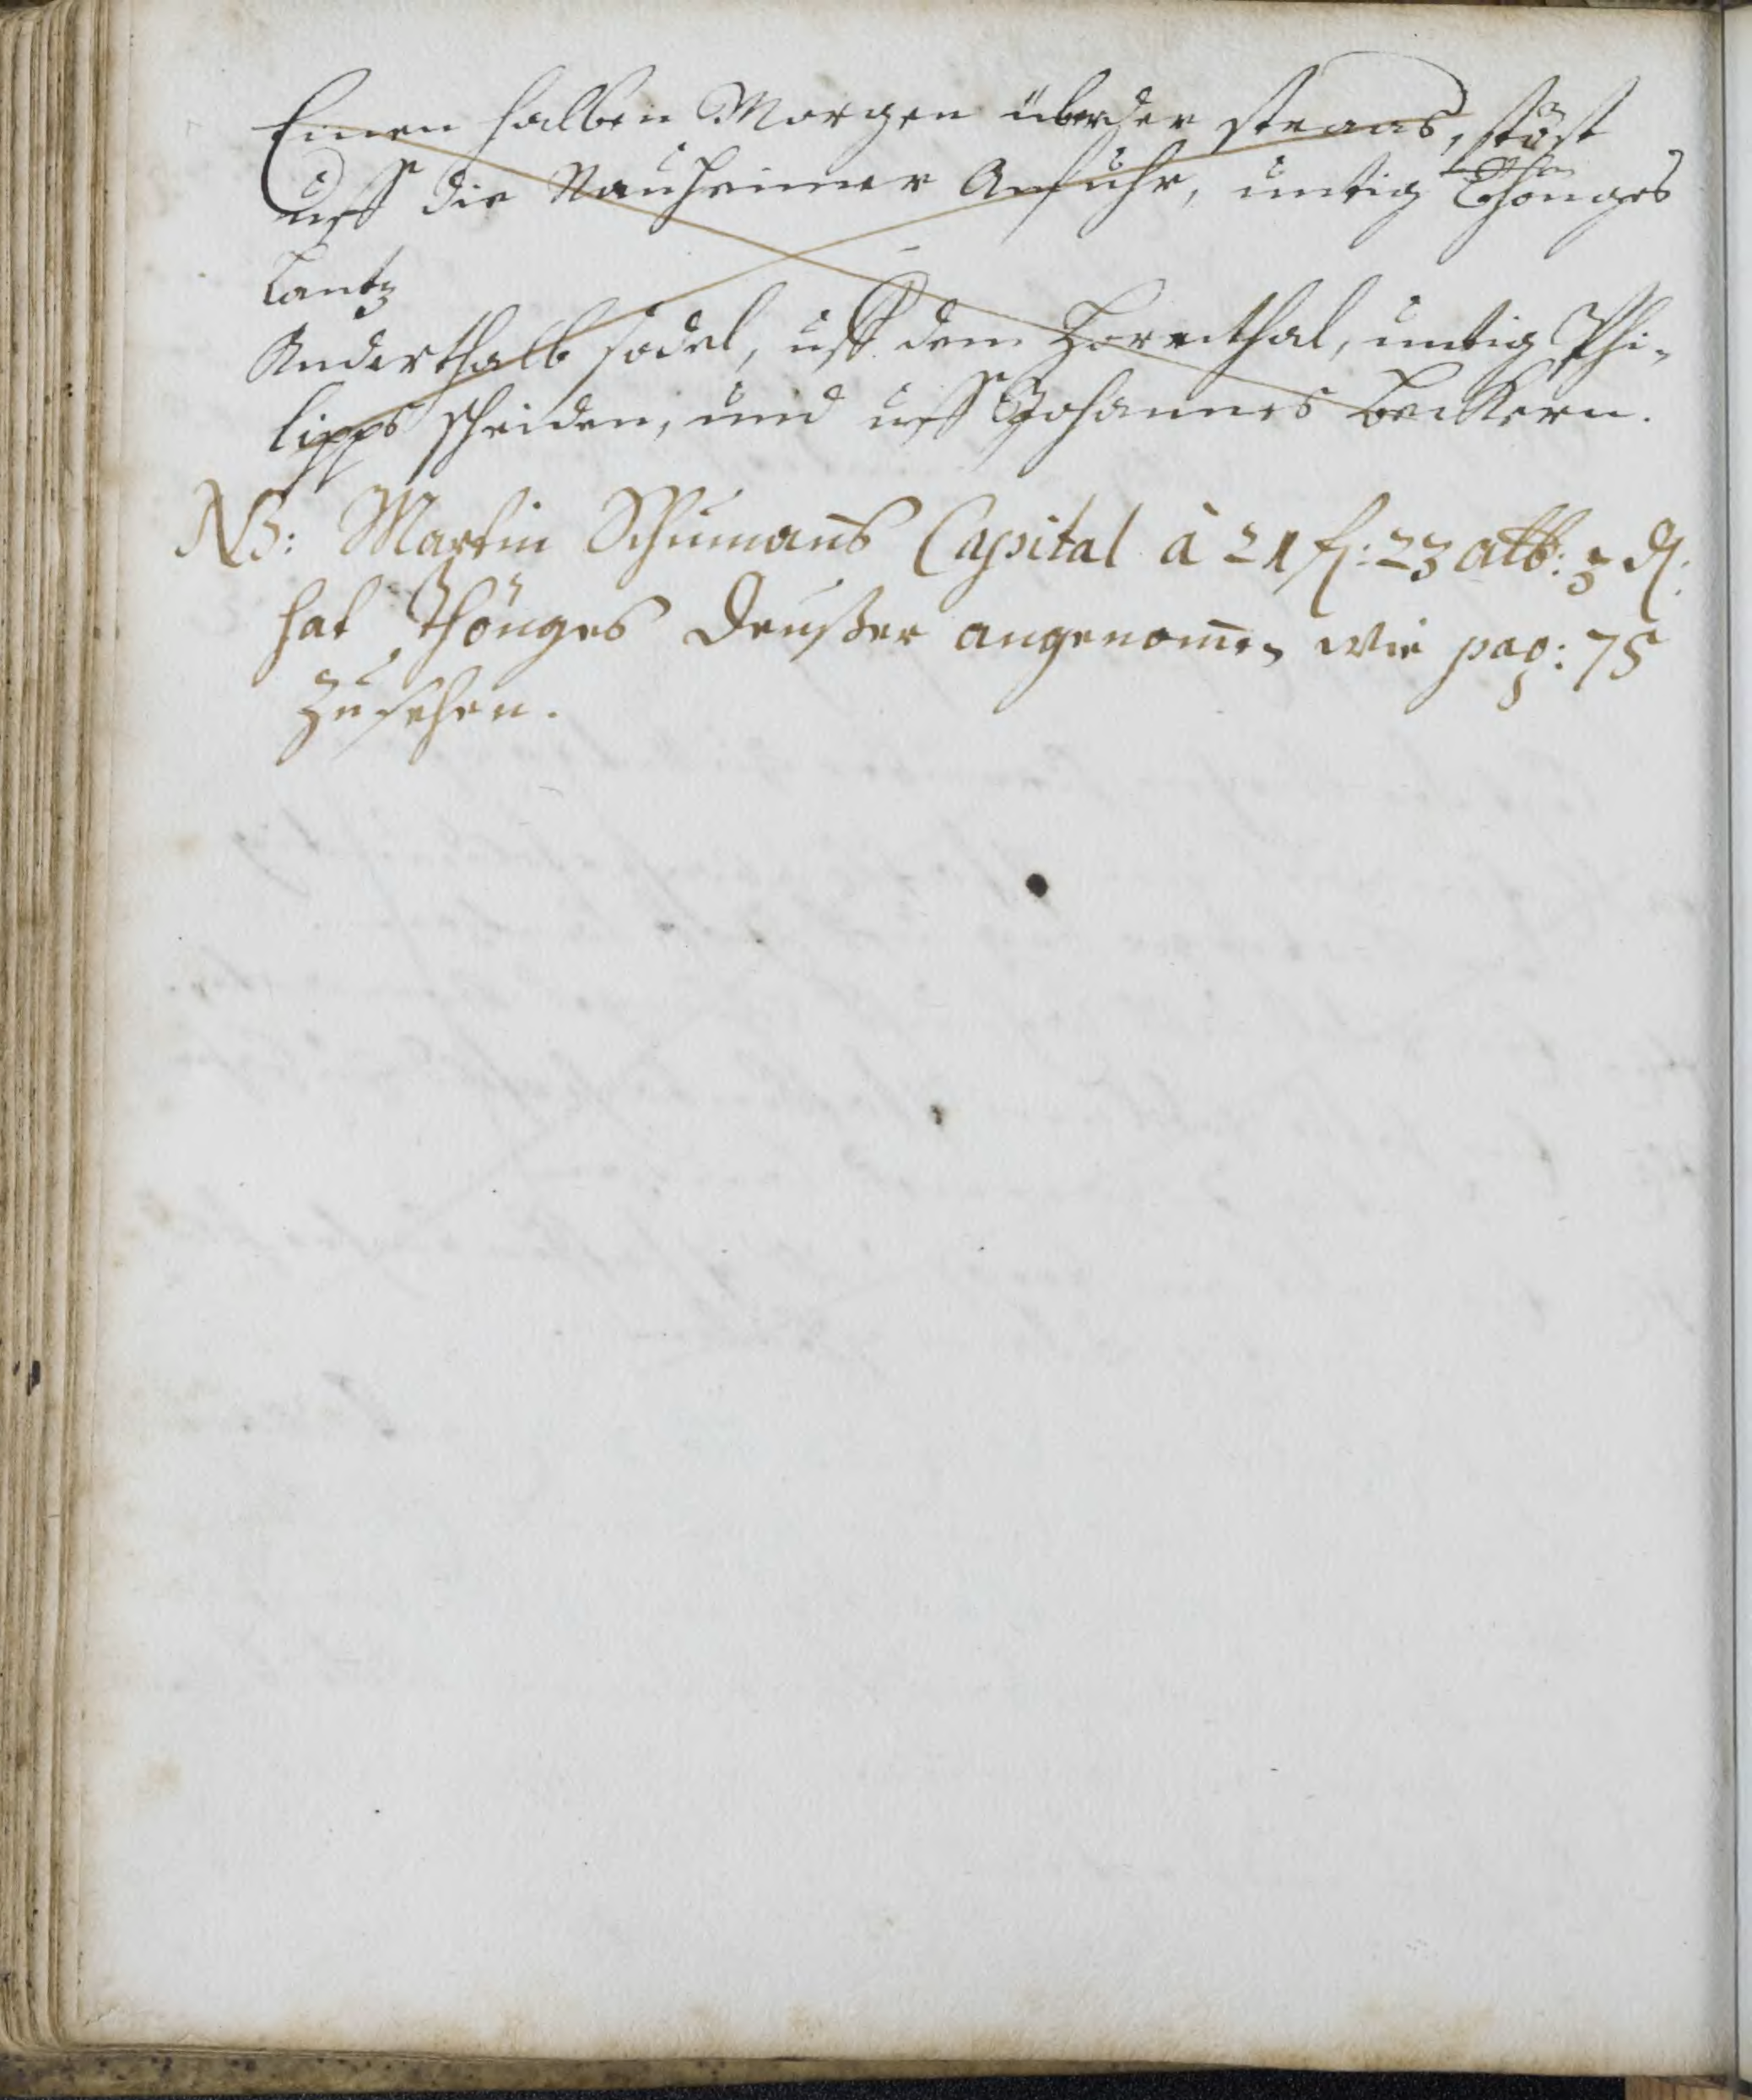 Einen halben Morgen über der straas, stöst
uff die Nauheimer Anfuhr, untig Thönges
Lantz
Anderthalb sodel, uff dem Hornthal, untig Phi-
lipps scheiden, und uff Johannes Beckern.
NB: Martin Schumans Capital à 21 fl: 23 alb: 3 d:
hat Thönges Deußer angenomen wie pag: 75
zu sehen.